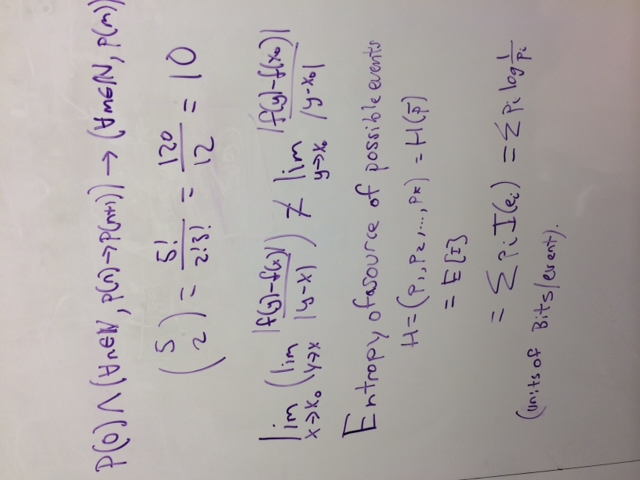 P(0)∧(∀n∈ℕ, P(n)→P(n+1)) → (∀m∈ℕ, P(m))
(5 2) = 5!/2!3! = 120/12 = 10
lim x→x₀ (lim y→x |f(y)-f(x)|/|y-x|) ≠ lim y→x₀ |f(y)-f(x₀)|/|y-x₀|
Entropy of a source of possible events
H=(P₁, P₂, ..., Pₖ) = H(p̄)
= E[I]
= Σ Pᵢ I(eᵢ) = Σ Pᵢ log 1/Pᵢ
(units of Bits/event).